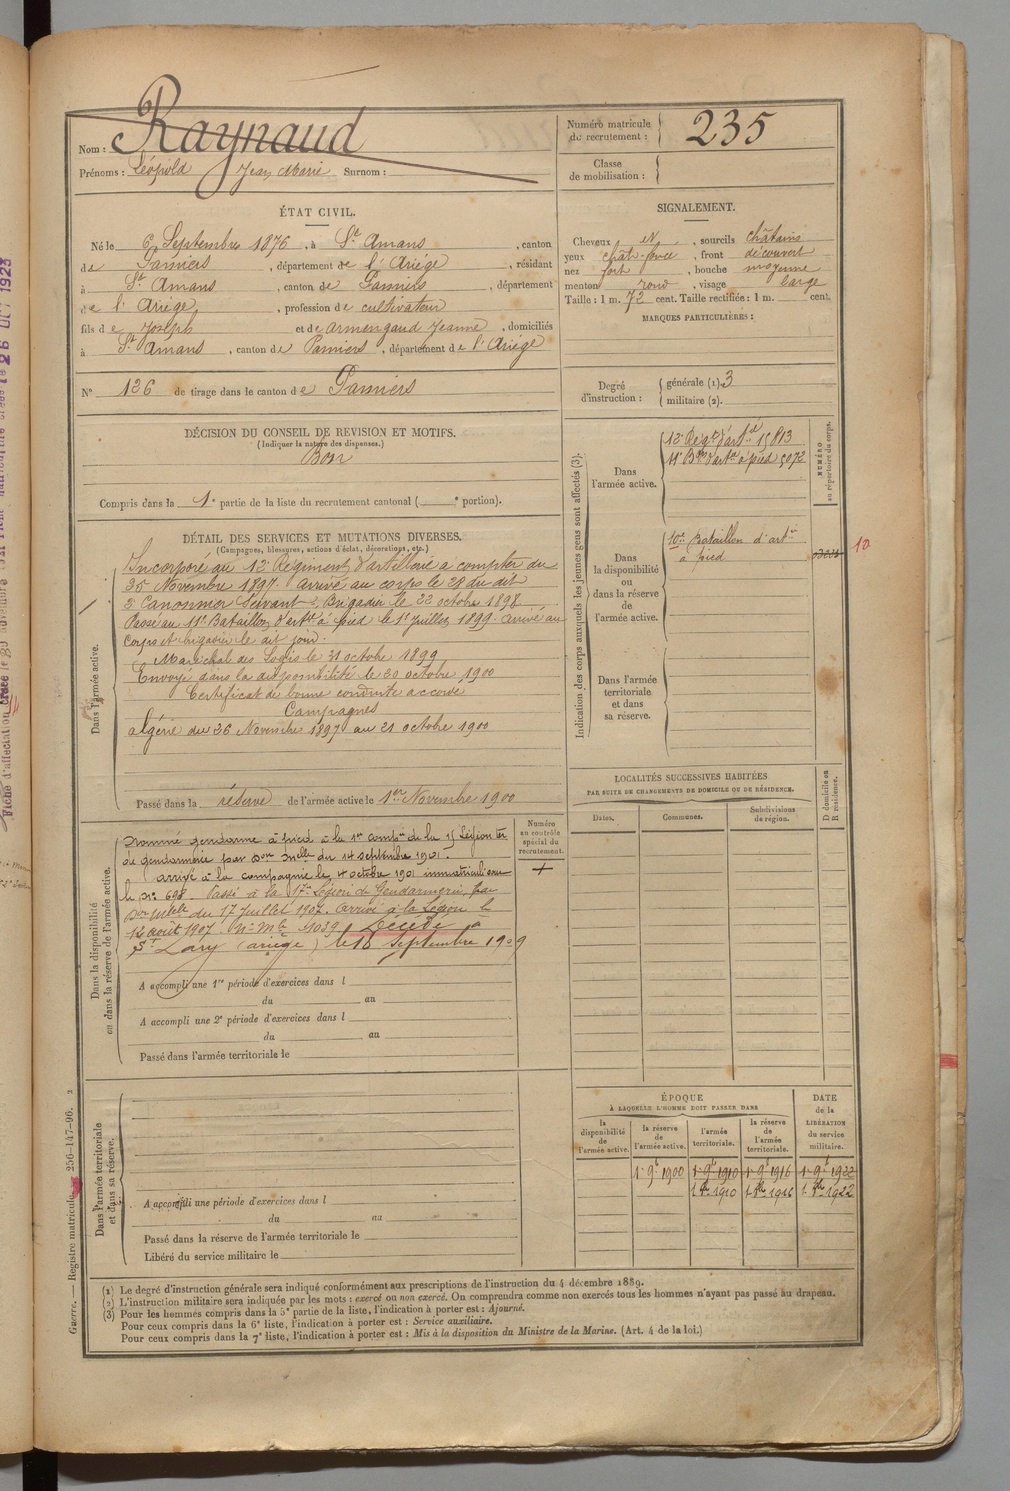 Nom : Raynaud
Prénoms : Léopold Jean Marie Surnom :
Numéro matricule du recrutement : 235
Classe de mobilisation :
ÉTAT CIVIL.
Né le 6 Septembre 1876, à St Amans, canton
de Pamiers, département de l'Ariège, résidant
à St Amans, canton de Pamiers, département
de l'Ariège, profession de cultivateur
fils de Joseph et de Armengaud Jeanne, domiciliés
à St Amans, canton de Pamiers, département de l'Ariège
SIGNALEMENT.
Cheveux , sourcils châtains
yeux chât. foncé, front découvert
nez fort, bouche moyenne
menton rond, visage large
Taille : 1 m. 72 cent. Taille rectifiée : 1 m. cent.
MARQUES PARTICULIÈRES :
N° 126 de tirage dans le canton de Pamiers
Degré d'instruction : générale (1). 3
militaire (2).
DÉCISION DU CONSEIL DE REVISION ET MOTIFS.
(Indiquer la nature des dispenses.)
Bon
Compris dans la 1e partie de la liste du recrutement cantonal ( e portion).
Indication des corps auxquels les jeunes gens sont affectés (3).
NUMÉRO au répertoire du corps.
Dans l'armée active.
12e Régt d'artie 15813
11e Bon d'artie à pied 5072
Dans la disponibilité ou dans la réserve de l'armée active.
10e Bataillon d'artie
à pied
10
Dans l'armée territoriale et dans sa réserve.
DÉTAIL DES SERVICES ET MUTATIONS DIVERSES.
(Campagnes, blessures, actions d'éclat, décorations, etc.)
Dans l'armée active.
Incorporé au 12e Régiment d'artillerie à compter du
25 Novembre 1897. Arrivé au corps le 28 du dit
2e Canonnier Servant, Brigadier le 22 octobre 1898
Passé au 11e Bataillon d'artie à pied le 1er Juillet 1899. Arrivé au
corps et brigadier le dit jour.
Maréchal des Logis le 31 octobre 1899
Envoyé dans la disponibilité le 20 octobre 1900
Certificat de bonne conduite accordé
Campagnes
Algérie du 26 Novembre 1897 au 21 octobre 1900
Passé dans la réserve de l'armée active le 1er Novembre 1900
LOCALITÉS SUCCESSIVES HABITÉES
PAR SUITE DE CHANGEMENTS DE DOMICILE OU DE RÉSIDENCE.
Dates. Communes. Subdivisions de région. D domicile ou R résidence.
Numéro au contrôle spécial du recrutement.
+
Dans la disponibilité ou dans la réserve de l'armée active.
Nommé gendarme à pied à la 1re compie de la Légion
de gendarmerie par Don Melle du 14 septembre 1901.
Arrivé à la compagnie le 4 octobre 1901 immatriculé sous
le No 698. Passé à la 17e Légion de Gendarmerie par
Don Mlle du 17 Juillet 1907. Arrivé à la Légion le
12 août 1907. No Mle 1039. Décédé à
St Lary (Ariège) le 16 Septembre 1909
A accompli une 1re période d'exercices dans l
du au
A accompli une 2e période d'exercices dans l
du au
Passé dans l'armée territoriale le
Dans l'armée territoriale et dans sa réserve.
A accompli une période d'exercices dans l
du au
Passé dans la réserve de l'armée territoriale le
Libéré du service militaire le
ÉPOQUE
À LAQUELLE L'HOMME DOIT PASSER DANS
DATE de la LIBÉRATION du service militaire.
la disponibilité de l'armée active. la réserve de l'armée active. l'armée territoriale. la réserve de l'armée territoriale.
1er 9e 1900 1er 9e 1910 1er 9e 1916 1er 9e 1922
1910 1916 1922
Guerre. — Registre matricule. 256-147-96. 2
(1) Le degré d'instruction générale sera indiqué conformément aux prescriptions de l'instruction du 4 décembre 1889.
(2) L'instruction militaire sera indiquée par les mots : exercé ou non exercé. On comprendra comme non exercés tous les hommes n'ayant pas passé au drapeau.
(3) Pour les hommes compris dans la 5e partie de la liste, l'indication à porter est : Ajourné.
Pour ceux compris dans la 6e liste, l'indication à porter est : Service auxiliaire.
Pour ceux compris dans la 7e liste, l'indication à porter est : Mis à la disposition du Ministre de la Marine. (Art. 4 de la loi.)